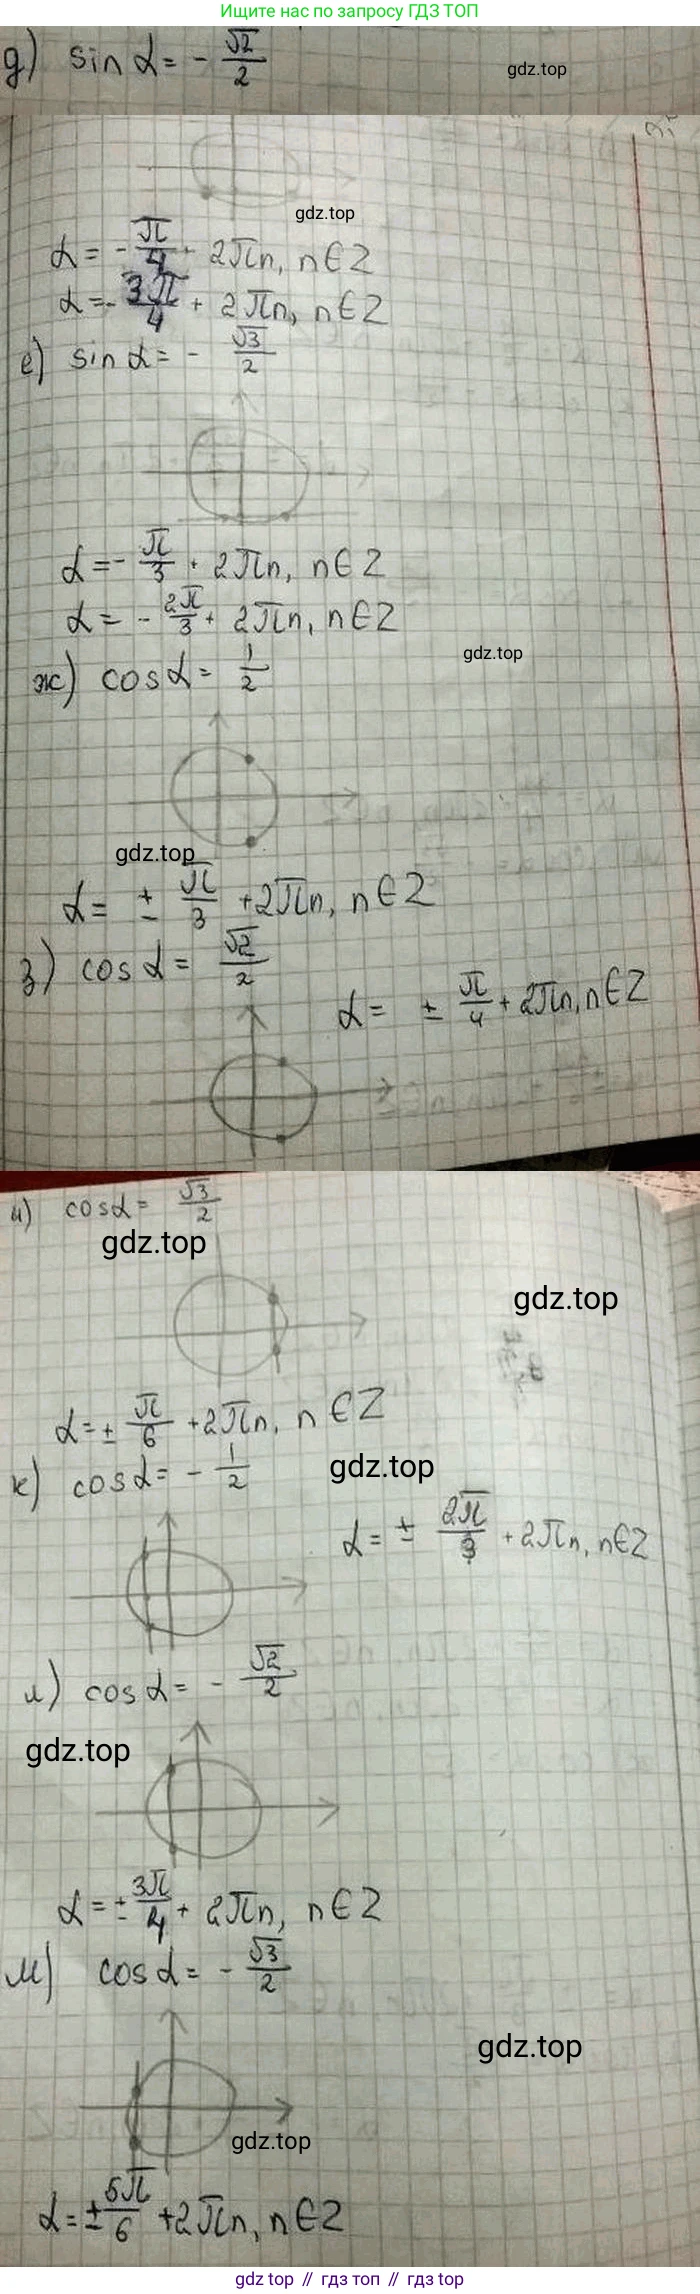 Ищите по запросу ГДЗ ТОП
д) sin α = - √2/2
gdz.top
gdz.top
α = - π/4 + 2πn, n∈Z
α = - 3π/4 + 2πn, n∈Z
е) sin α = - √3/2
α = - π/3 + 2πn, n∈Z
α = - 2π/3 + 2πn, n∈Z
gdz.top
ж) cos α = 1/2
gdz.top
α = ± π/3 + 2πn, n∈Z
з) cos α = √2/2
α = ± π/4 + 2πn, n∈Z
и) cos α = √3/2
gdz.top
gdz.top
α = ± π/6 + 2πn, n∈Z
gdz.top
к) cos α = - 1/2
α = ± 2π/3 + 2πn, n∈Z
л) cos α = - √2/2
gdz.top
α = ± 3π/4 + 2πn, n∈Z
м) cos α = - √3/2
gdz.top
gdz.top
α = ± 5π/6 + 2πn, n∈Z
gdz top // гдз топ // gdz top